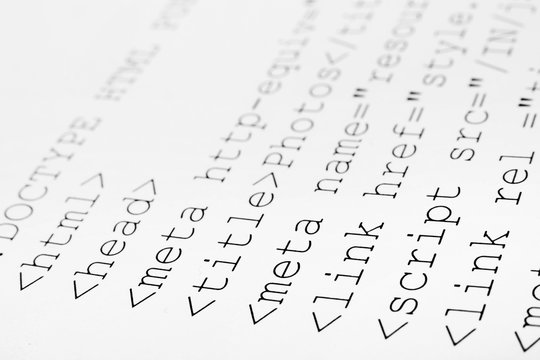 DOCTYPE HTML
<html>
<head>
<meta http-equiv
<title>Photos</tit
<meta name="resour
<link href="style.
<script src="/IN/j
<link rel ="
<me